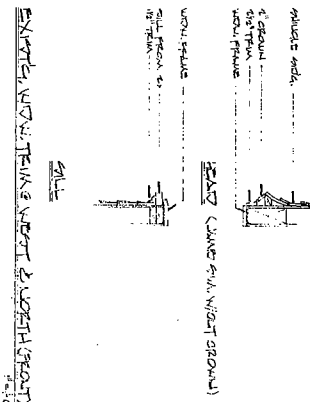 SHINGLE SIDG.
2" CROWN
3 1/2" TRIM
WDW. FRAME
HEAD (JAMB SIM. W/OUT CROWN)
WDW. FRAME
SILL FROM 2x
1 1/2" TRIM
SILL
EXIST'G. WDW. TRIM @ WEST & NORTH FRONT